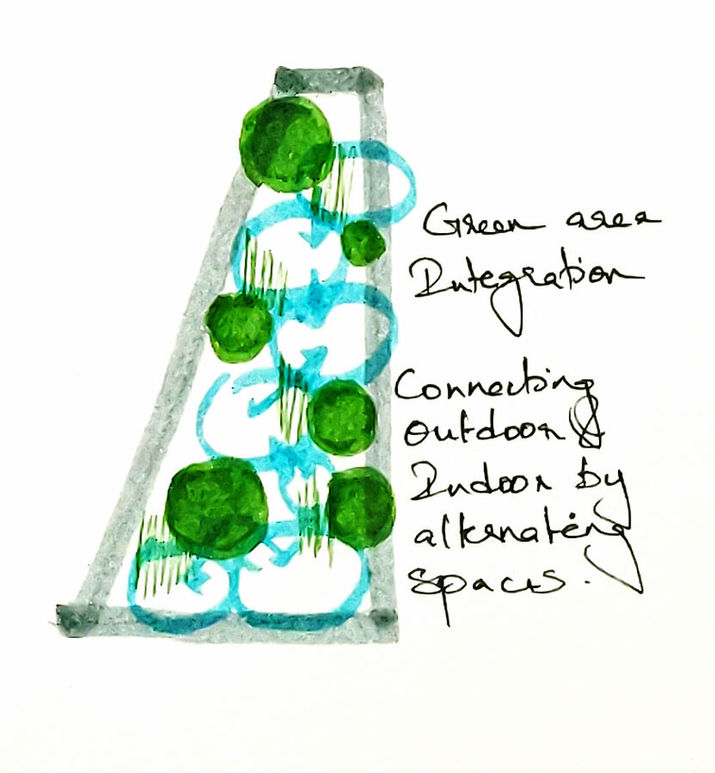 Green area
Integration
Connecting
outdoor &
Indoor by
alternating
spaces.